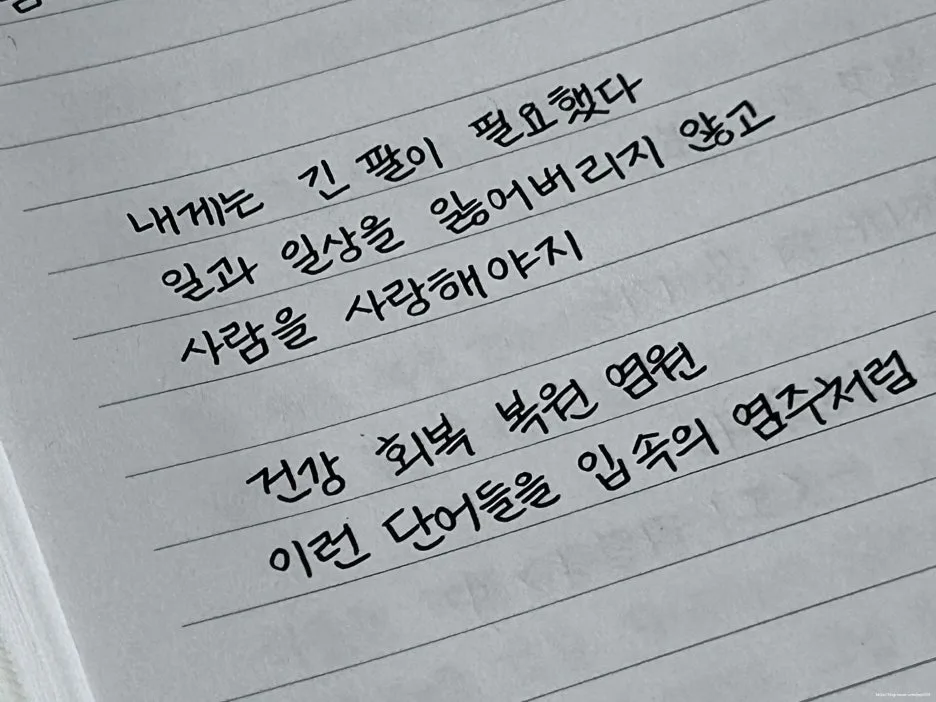 내게는 긴 팔이 필요했다
일과 일상을 잃어버리지 않고
사람을 사랑해야지
건강 회복 복원 염원
이런 단어들을 입속의 염주처럼